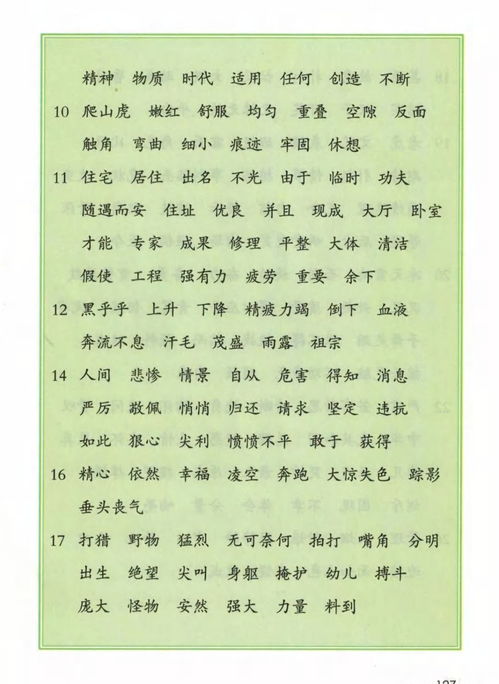 精神 物质 时代 适用 任何 创造 不断
10 爬山虎 嫩红 舒服 均匀 重叠 空隙 反面
触角 弯曲 细小 痕迹 牢固 休想
11 住宅 居住 出名 不光 由于 临时 功夫
随遇而安 住址 优良 并且 现成 大厅 卧室
才能 专家 成果 修理 平整 大体 清洁
假使 工程 强有力 疲劳 重要 余下
12 黑乎乎 上升 下降 精疲力竭 倒下 血液
奔流不息 汗毛 茂盛 雨露 祖宗
14 人间 悲惨 情景 自从 危害 得知 消息
严厉 敬佩 悄悄 归还 请求 坚定 违抗
如此 狠心 尖利 愤愤不平 敢于 获得
16 精心 依然 幸福 凌空 奔跑 大惊失色 踪影
垂头丧气
17 打猎 野物 猛烈 无可奈何 拍打 嘴角 分明
出生 绝望 尖叫 身躯 掩护 幼儿 搏斗
庞大 怪物 安然 强大 力量 料到